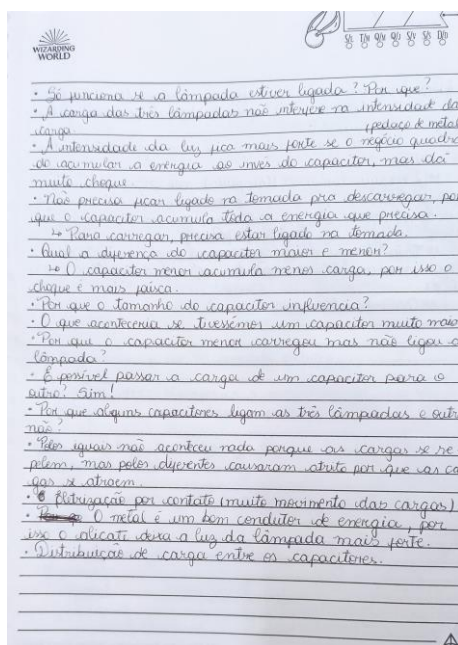 WIZARDING
WORLD
S/s T/w Q/w Q/J S/v S/s D/D
• Só funciona se a lâmpada estiver ligada? Por que?
• A carga das três lâmpadas não interfere na intensidade da
carga. pedaço de metal
• A intensidade da luz fica mais forte se o negócio quadra
do acumular a energia ao invés do capacitor, mas dói
muito choque.
• Não precisa ficar ligado na tomada pra descarregar, por
que o capacitor acumula toda a energia que precisa.
↳ Para carregar, precisa estar ligado na tomada.
• Qual a diferença do capacitor maior e menor?
↳ O capacitor menor acumula menos carga, por isso o
choque é mais faísca.
• Por que o tamanho do capacitor influencia?
• O que aconteceria se tivessemos um capacitor muito maior
• Por que o capacitor menor carregou mas não ligou a
lâmpada?
• É possível passar a carga de um capacitor para o
outro? Sim!
• Por que alguns capacitores ligam as três lâmpadas e outr
não?
• Polos iguais não aconteceu nada porque as cargas se re
pelem, mas polos diferentes causaram atrito por que as ca
gas se atraem.
• Eletrização por contato (muito movimento das cargas)
• O metal é um bom condutor de energia, por
isso o alicate deixa a luz da lâmpada mais forte.
• Distribuição de carga entre os capacitores.